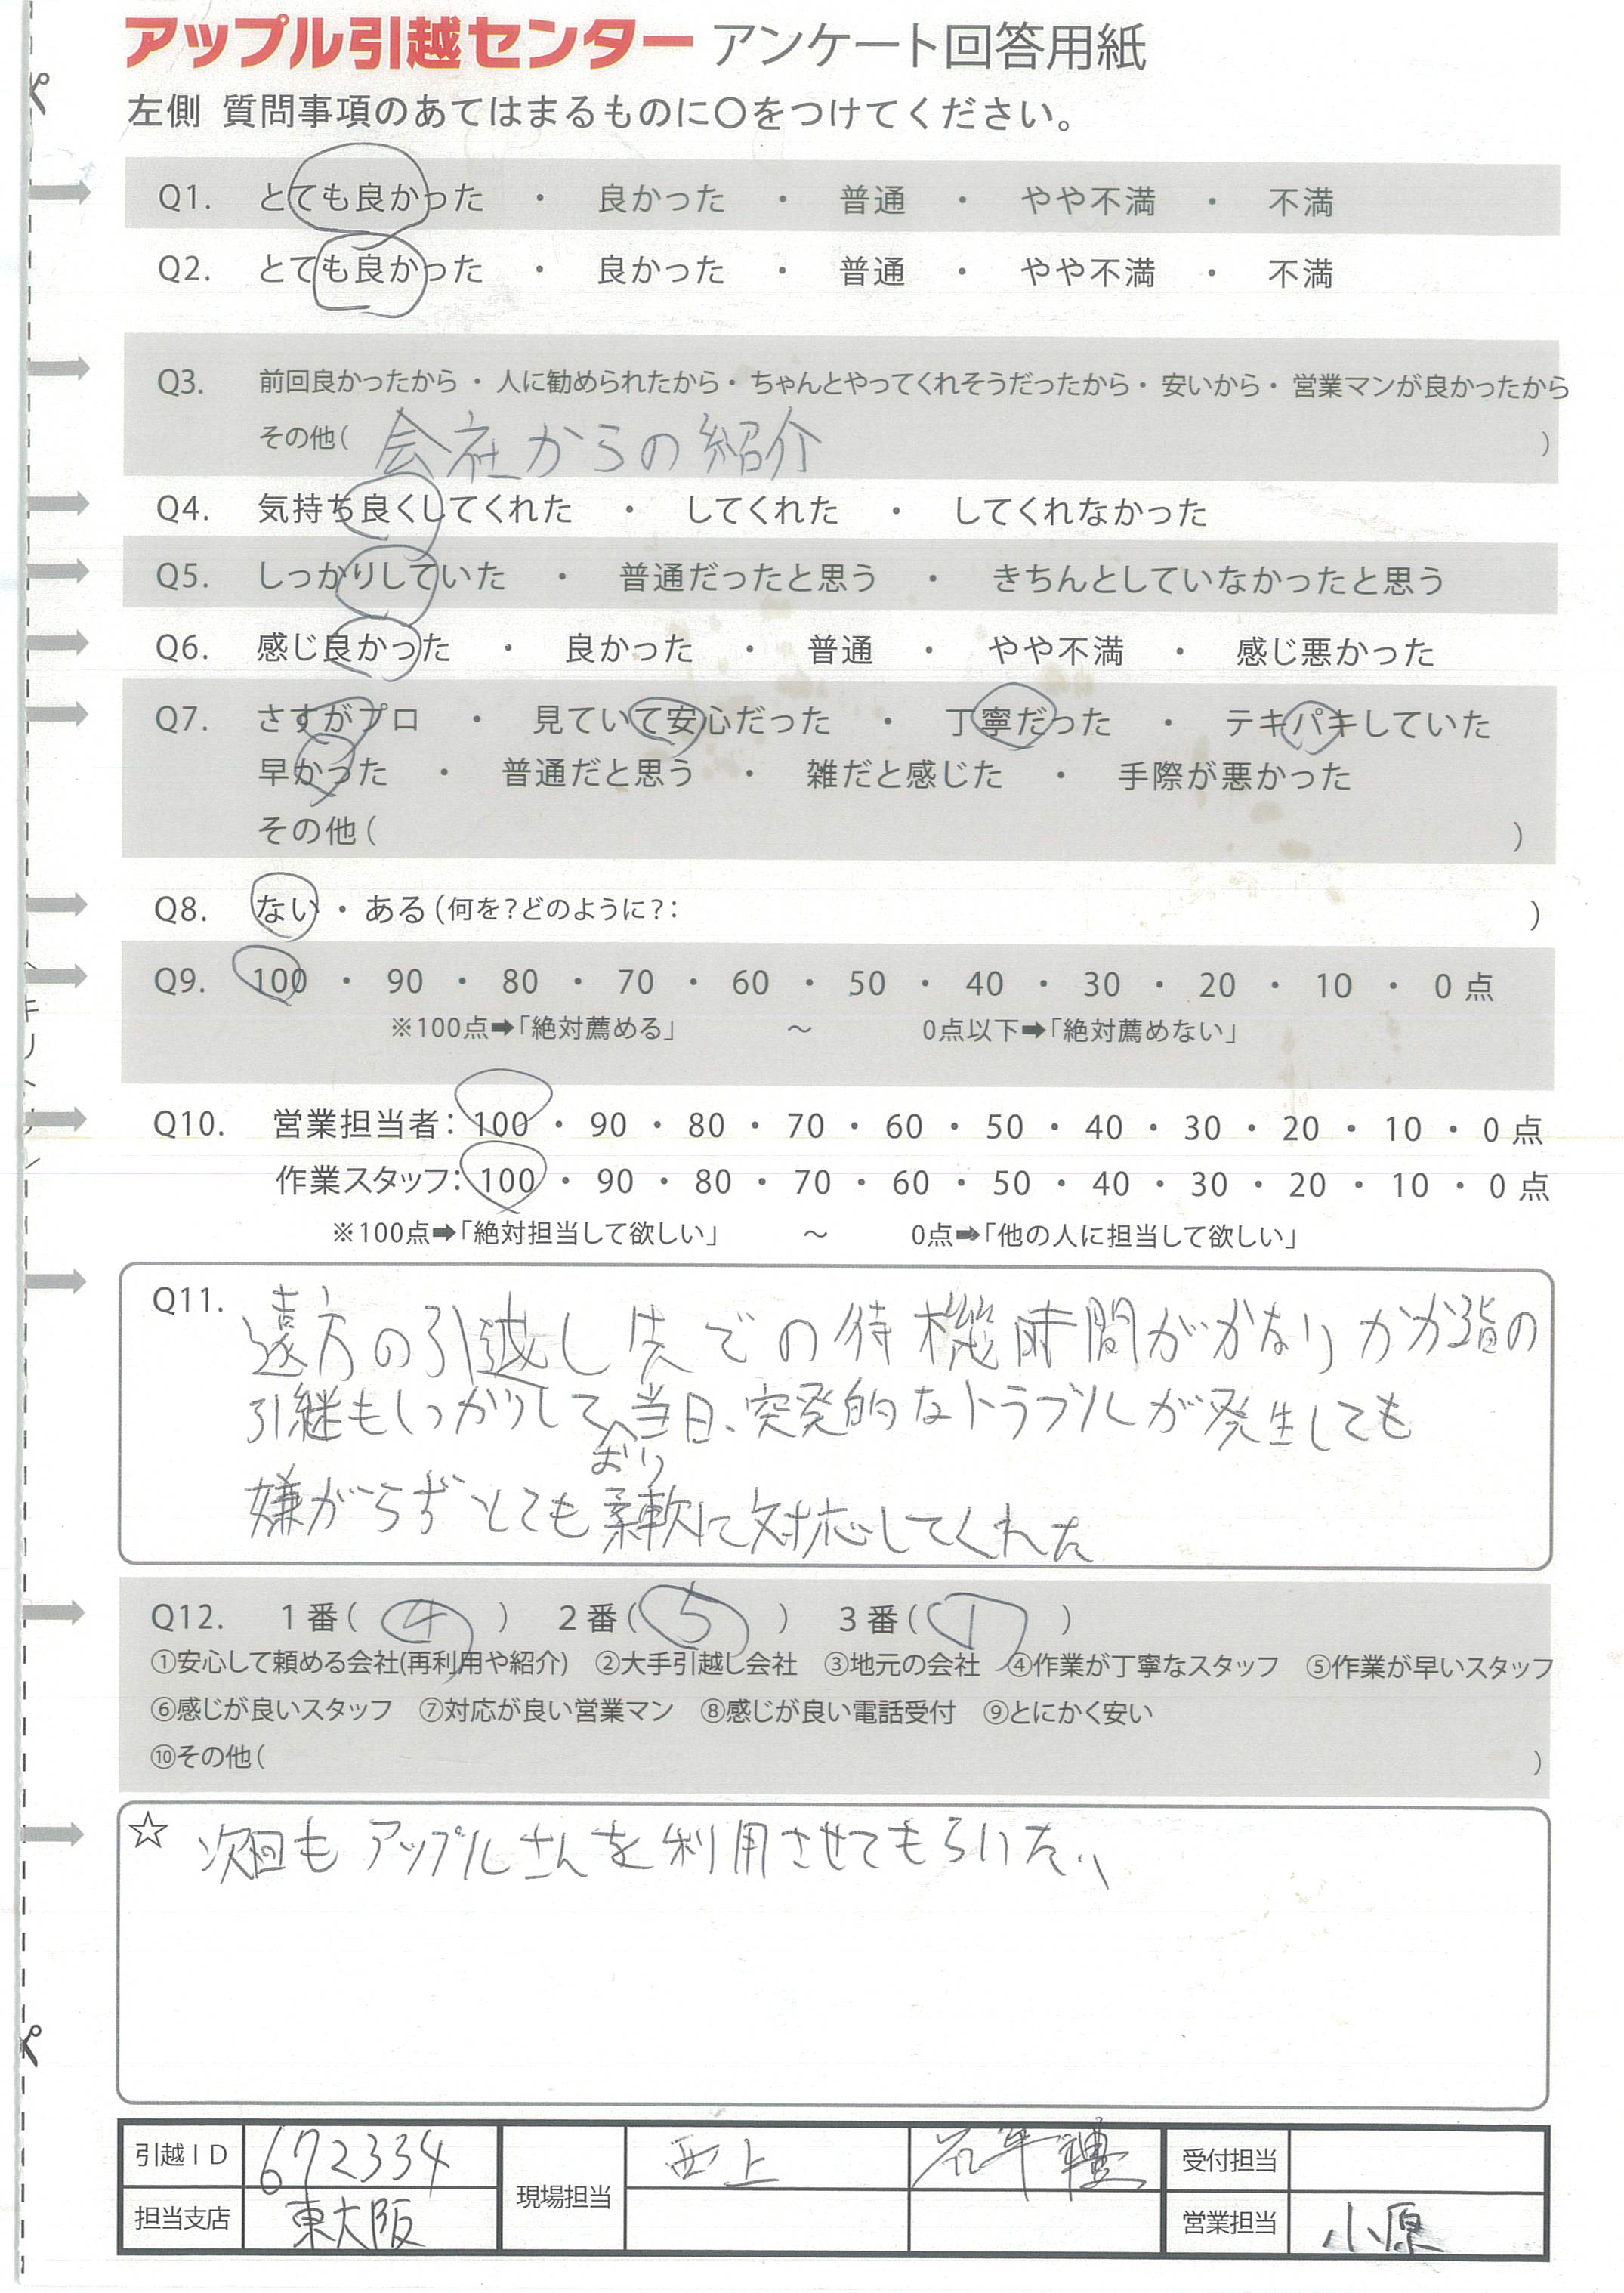 アップル引越センター アンケート回答用紙
左側 質問事項のあてはまるものに〇をつけてください。
Q1. とても良かった ・ 良かった ・ 普通 ・ やや不満 ・ 不満
Q2. とても良かった ・ 良かった ・ 普通 ・ やや不満 ・ 不満
Q3. 前回良かったから ・ 人に勧められたから ・ ちゃんとやってくれそうだったから ・ 安いから ・ 営業マンが良かったから
その他( 会社からの紹介 )
Q4. 気持ち良くしてくれた ・ してくれた ・ してくれなかった
Q5. しっかりしていた ・ 普通だったと思う ・ きちんとしていなかったと思う
Q6. 感じ良かった ・ 良かった ・ 普通 ・ やや不満 ・ 感じ悪かった
Q7. さすがプロ ・ 見ていて安心だった ・ 丁寧だった ・ テキパキしていた
早かった ・ 普通だと思う ・ 雑だと感じた ・ 手際が悪かった
その他( )
Q8. ない ・ ある(何を?どのように?: )
Q9. 100 ・ 90 ・ 80 ・ 70 ・ 60 ・ 50 ・ 40 ・ 30 ・ 20 ・ 10 ・ 0 点
※100点➡「絶対薦める」 ～ 0点以下➡「絶対薦めない」
Q10. 営業担当者: 100 ・ 90 ・ 80 ・ 70 ・ 60 ・ 50 ・ 40 ・ 30 ・ 20 ・ 10 ・ 0 点
作業スタッフ: 100 ・ 90 ・ 80 ・ 70 ・ 60 ・ 50 ・ 40 ・ 30 ・ 20 ・ 10 ・ 0 点
※100点➡「絶対担当して欲しい」 ～ 0点➡「他の人に担当して欲しい」
Q11. 遠方の引越し先での待機時間がかなりかか の
引継もしっかりして 当日、突発的なトラブルが発生しても
おり
嫌がらずとても柔軟に対応してくれた
Q12. 1番( ④ ) 2番( ⑤ ) 3番( ① )
①安心して頼める会社(再利用や紹介) ②大手引越し会社 ③地元の会社 ④作業が丁寧なスタッフ ⑤作業が早いスタッフ
⑥感じが良いスタッフ ⑦対応が良い営業マン ⑧感じが良い電話受付 ⑨とにかく安い
⑩その他( )
☆ 次回もアップルさんを利用させてもらいたい
引越ID 672334 現場担当 西上 受付担当
担当支店 東大阪 営業担当 小原
キリトリ